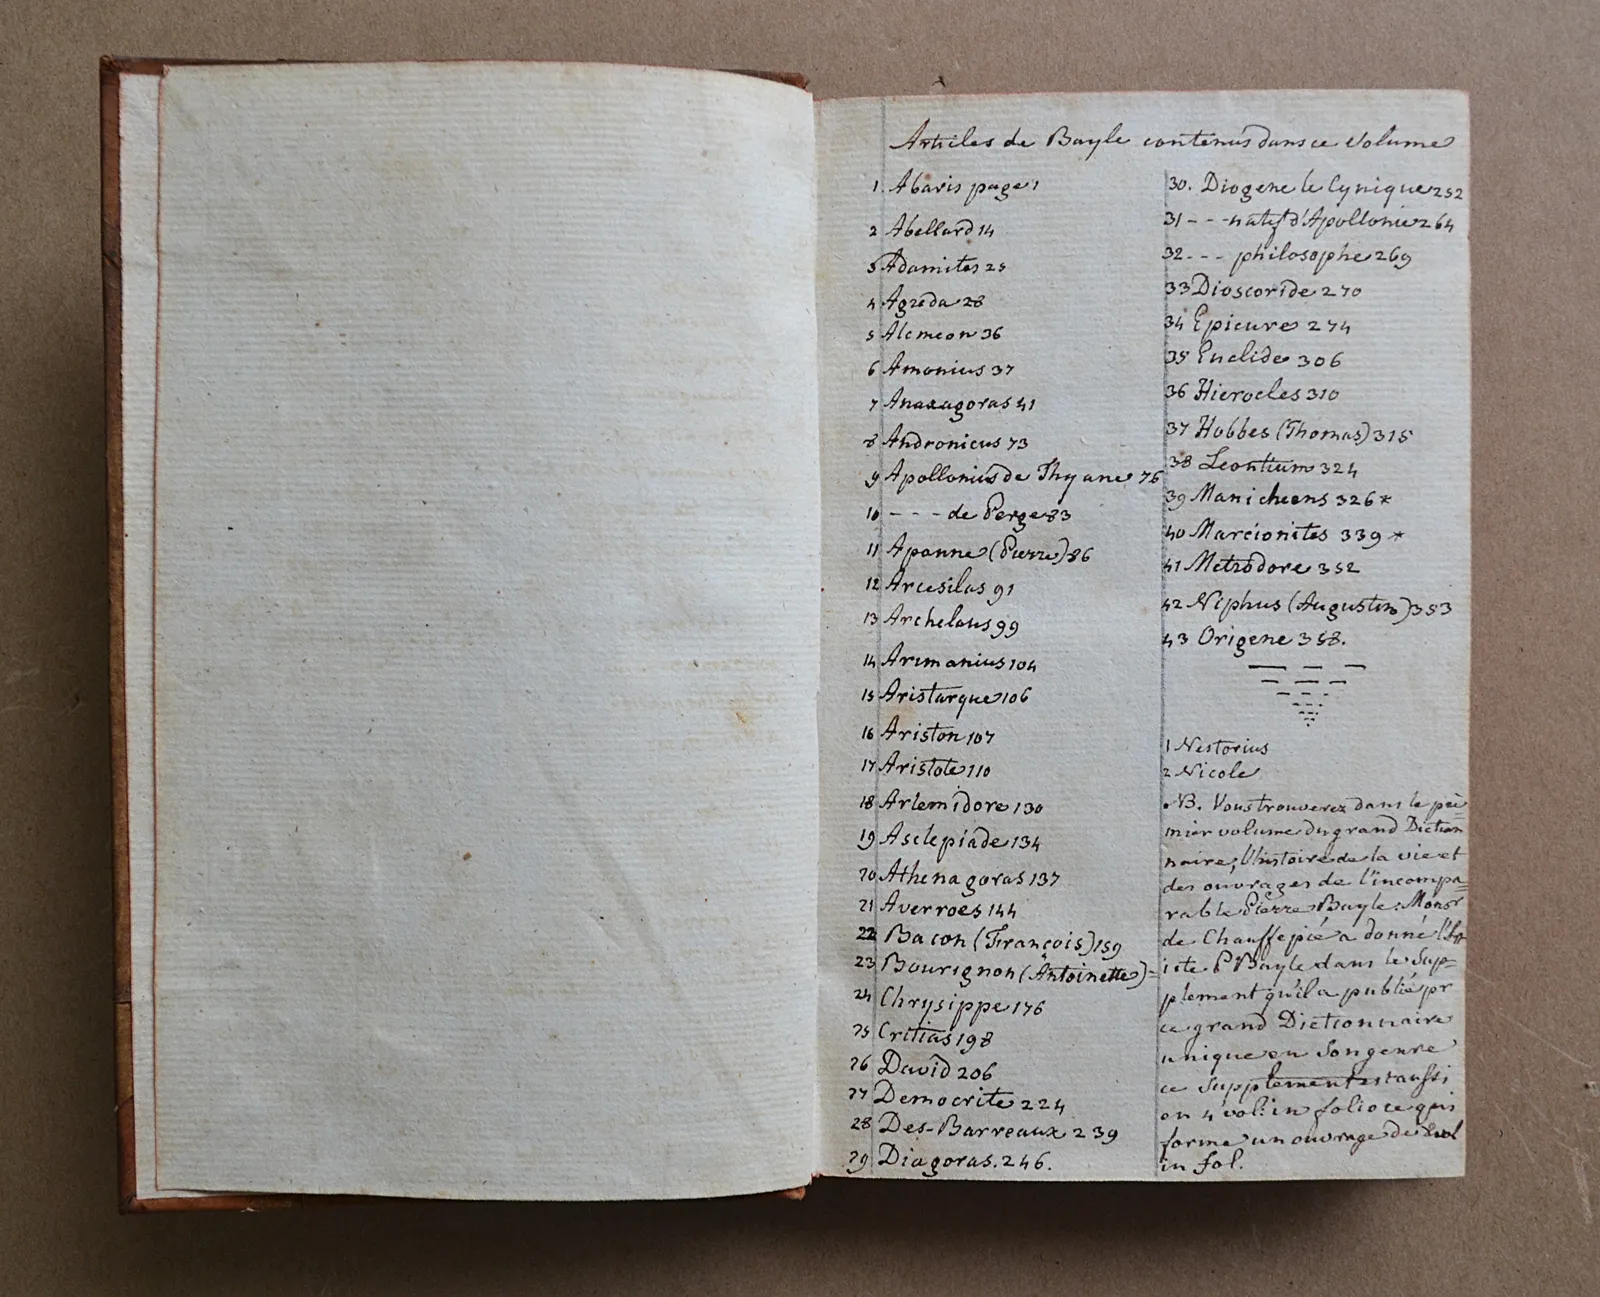 Articles de Bayle contenus dans ce Volume
1. Abaris page 1
2 Abellard 14
3 Adamites 25
4 Agreda 28
5 Alcmeon 36
6 Amonius 37
7 Anaxagoras 41
8 Andronicus 73
9 Apollonius de Thyane 76
10 - - - de Perge 83
11 Aponne (Pierre) 86
12 Arcesilas 91
13 Archelaus 99
14 Arimanius 104
15 Aristarque 106
16 Ariston 107
17 Aristote 110
18 Artemidore 130
19 Asclepiade 134
20 Athenagoras 137
21 Averroes 144
22 Bacon (François) 159
23 Bourignon (Antoinette) =
24 Chrysippe 176
25 Critias 198
26 David 206
27 Democrite 224
28 Des-Barreaux 239
29 Diagoras. 246.
30. Diogene le Cynique 252
31 - - - natif d'Apollonie 264
32 - - - philosophe 269
33 Dioscoride 270
34 Epicure 274
35 Euclide 306
36 Hierocles 310
37 Hobbes (Thomas) 315
38 Leontium 324
39 Manicheens 326 *
40 Marcionites 339 *
41 Metrodore 352
42 Niphus (Augustin) 353
43 Origene 358.
1 Nestorius
2 Nicole
NB. Vous trouverez dans le pre=
mier volume du grand Diction
naire, l'histoire de la vie et
des ouvrages de l'incompa=
rable Pierre Bayle. Monsr
de Chauffepié a donné
P Bayle dans le Sup=
plement qu'il a publié pr
ce grand Dictionnaire
unique en son genre
ce Supplement est aussi
en 4 vol: in folio ce qui
forme un ouvrage de 8 vol
in fol.